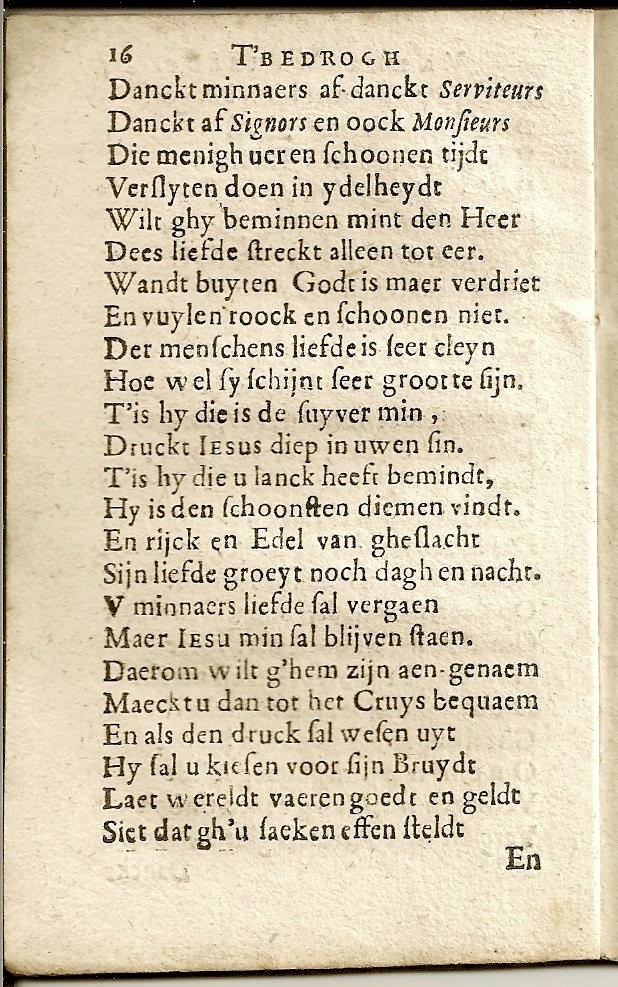 16 T'BEDROGH
Danckt minnaers af danckt Serviteurs
Danckt af Signors en oock Monſieurs
Die menigh ueren ſchoonen tijdt
Verſlyten doen in ydelheydt
Wilt ghy beminnen mint den Heer
Dees liefde ſtreckt alleen tot eer.
Wandt buyten Godt is maer verdriet
En vuylen roock en ſchoonen niet.
Der menſchens liefde is ſeer cleyn
Hoe wel ſy ſchijnt ſeer groot te ſijn.
T'is hy die is de ſuyver min,
Druckt IESUS diep in uwen ſin.
T'is hy die u lanck heeft bemindt,
Hy is den ſchoonſten diemen vindt.
En rijck en Edel van gheſlacht
Sijn liefde groeyt noch dagh en nacht.
V minnaers liefde ſal vergaen
Maer IESU min ſal blijven ſtaen.
Daerom wilt g'hem zijn aen-genaem
Maeckt u dan tot het Cruys bequaem
En als den druck ſal weſen uyt
Hy ſal u kieſen voor ſijn Bruydt
Laet wereldt vaeren goedt en geldt
Siet dat gh'u ſaeken effen ſteldt
En